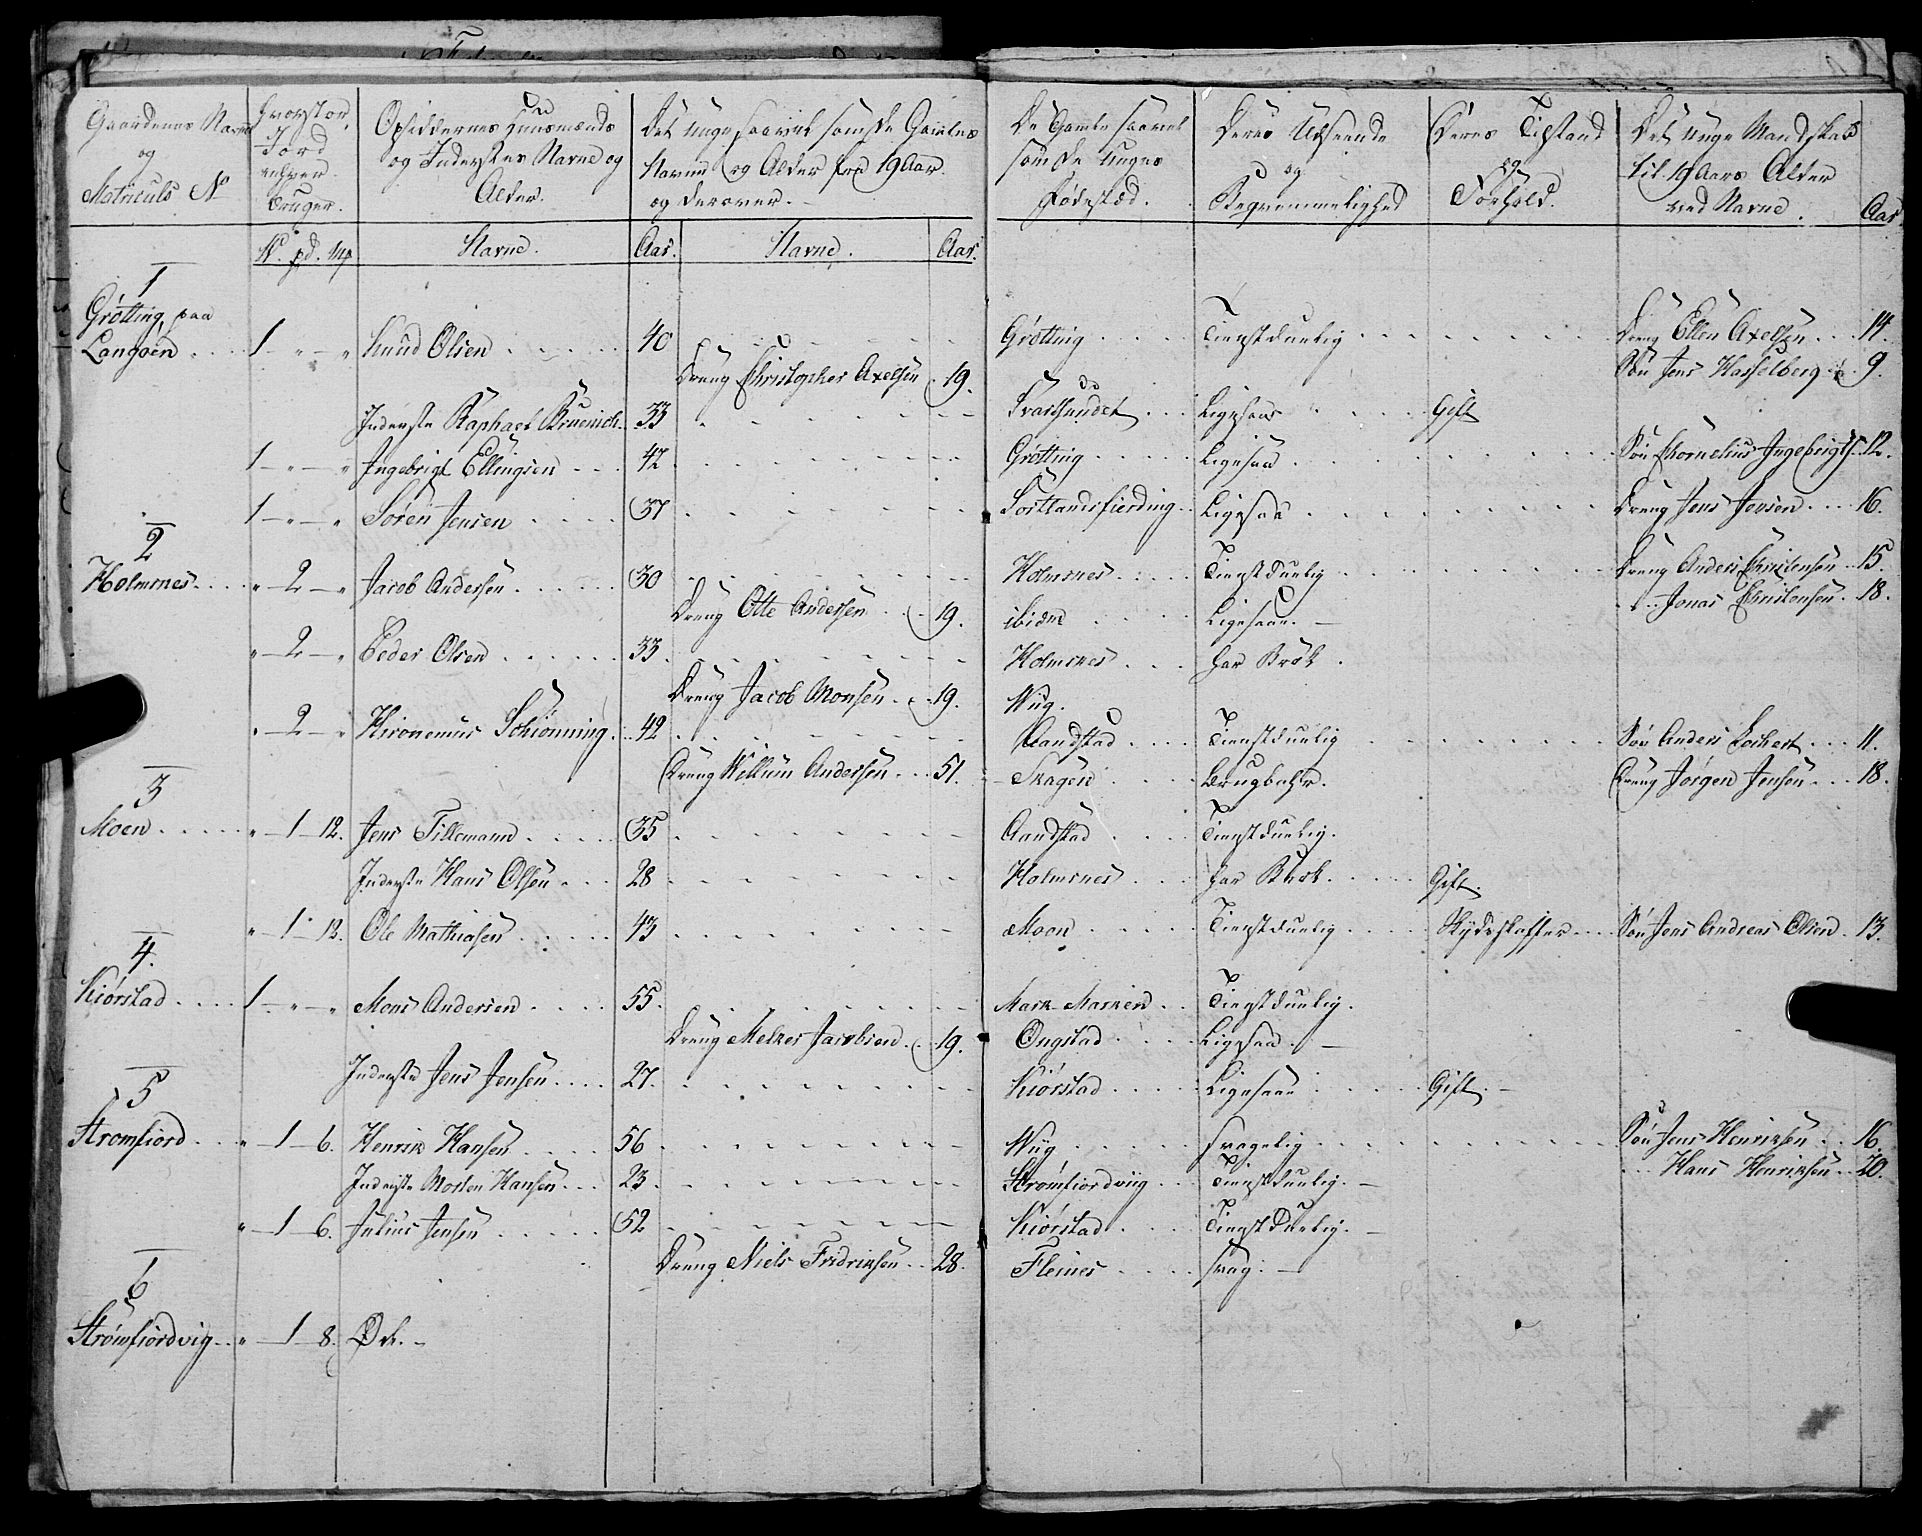 Gaardenes Navne og Matriculs No
Hvor stor Jord enhver bruger.
Opsiddernes Huusmænds og Inderster Navne og Alder.
Det unge saavel som de Gamles Navne og Alder fra 19 Aar og derover.
De Gamle saavel som de Unges Fødested.
Deres Udseende og Beqvemmelighed
Deres Tilstand og Forhold.
Det unge Mandskab til 19 Aars Alder ved Navne.
Aar
W. pd. mk Navne. Aar. Navne. Aar.
1
Grøtting paa
Langøen 1 - „ - „ Knud Olsen 40 Grøtting Tienstduelig Dreng Ellen Axelsen 14.
Dreng Christopher Axelsen 19. Søn Jens Hasselberg 9.
Inderste Raphael Bruenich 33 Svartsundet Ligesaa Gift
1 - „ - „ Ingebrigt Ellingsen 42 Grøtting Ligesaa Søn Chornelius Ingebrigts. 12.
1 - „ - „ Søren Jensen 37 Sortlandsfierding Ligesaa Dreng Jens Jensen 16.
2
Holmsnes „ - 2 - „ Jacob Andersen 30 Holmsnes Tienstduelig Dreng Anders Christensen 15.
Dreng Otte Andersen 19. ibidm Ligesaa. „ Jonas Christensen 18.
„ - 2 - „ Peder Olsen 33 Holmsnes har Brok.
Dreng Jacob Monsen 19. Wiig.
„ - 2 - „ Hironemus Schiønning 42 Aandstad Tienstduelig Søn Anders Lockert 11.
Dreng Willum Andersen 51. Skagen Brugbahr. Dreng Jørgen Jensen 18.
3
Moen „ - 1 - 12. Jens Tillemann 35 Aandstad Tienstduelig.
Inderste Hans Olsen 28 Holmsnes har Brok Gift.
„ - 1 - 12. Ole Mathiasen 43 Moen Tienstduelig Skydsskaffer Søn Jens Andreas Olsen 13.
4.
Kiørstad 1 - „ - „ Mons Andersen 55 Mark Tienstduelig.
Dreng Melker Jacobsen 19. Ongstad Ligesaa.
Inderste Jens Jensen 27. Kiørstad Ligesaa Gift.
5
Strømfiord „ - 1 - 6. Henrik Hansen 56 Wiig svagelig Søn Jens Henriksen 16
Inderste Morten Hansen 23 Strømfiordviig Tienstduelig. Hans Henriksen 20.
„ - 1 - 6. Julius Jensen 52 Kiørstad Tienstduelig.
Dreng Niels Fridriksen 28. Fleines svag.
6
Strømfiordvig „ - 1 - 8. Øde.